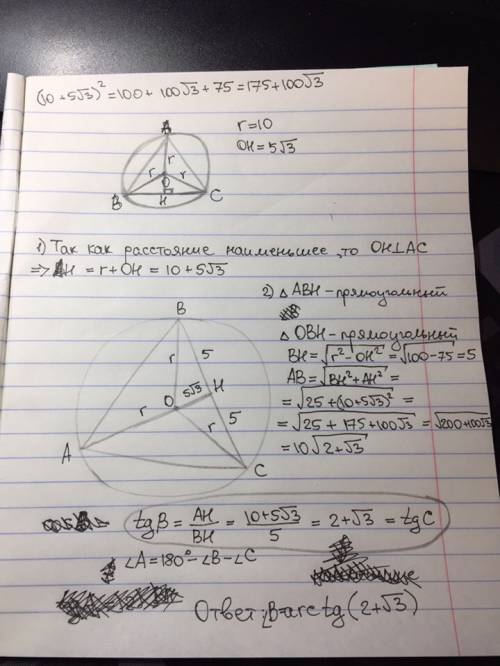 (10 + 5√3)² = 100 + 100√3 + 75 = 175 + 100√3
A
r = 10
OH = 5√3
r
r
r
O
B
H
C
1) Так как расстояние наименьшее, то OH⊥AC
⇒ AH = r + OH = 10 + 5√3
2) △ ABH - прямоугольный
△ OBH - прямоугольный
BH = √(r² - OH²) = √(100 - 75) = 5
AB = √(BH² + AH²) =
= √(25 + (10 + 5√3)²) =
= √(25 + 175 + 100√3) = √(200 + 100√3)
= 10√(2 + √3)
B
r
5
5√3
H
O
r
r
5
A
C
tgB = AH/BH = (10 + 5√3)/5 = 2 + √3 = tgC
∠A = 180° - ∠B - ∠C
Ответ: ∠B = arctg(2 + √3)